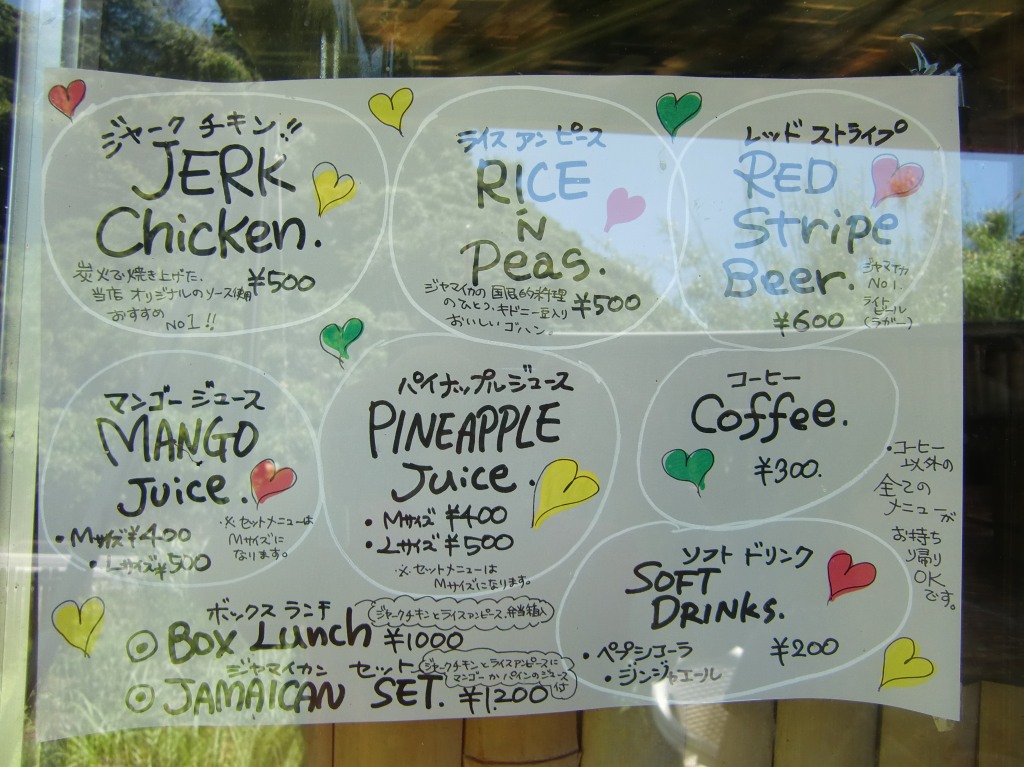 ジャーク チキン!!
JERK
Chicken.
炭火で焼き上げた、
当店 オリジナルのソース使用
おすすめ
No1!!
¥500
ライス アン ピース
RICE
'N
Peas.
ジャマイカの国民的料理
のひとつ、キドニー豆入り
おいしいゴハン。
¥500
レッド ストライプ
RED
Stripe
Beer.
ジャマイカ
No1.
ライト
ビール
(ラガー)
¥600
マンゴー ジュース
MANGO
Juice.
・Mサイズ ¥400
・Lサイズ ¥500
※セットメニューは
Mサイズに
なります。
パイナップルジュース
PINEAPPLE
Juice.
・Mサイズ ¥400
・Lサイズ ¥500
※セットメニューは
Mサイズになります。
コーヒー
Coffee.
¥300.
・コーヒー
以外の
全ての
メニューが
お持ち
帰り
OK
です。
ソフト ドリンク
SOFT
DRINKS.
・ペプシコーラ
・ジンジャエール
¥200
ボックス ランチ
◎BOX Lunch ¥1000
ジャークチキンとライスアンピース、弁当箱入
ジャマイカン セット
◎JAMAICAN SET. ¥1200
ジャークチキンとライスアンピースに
マンゴーかパインのジュース
付